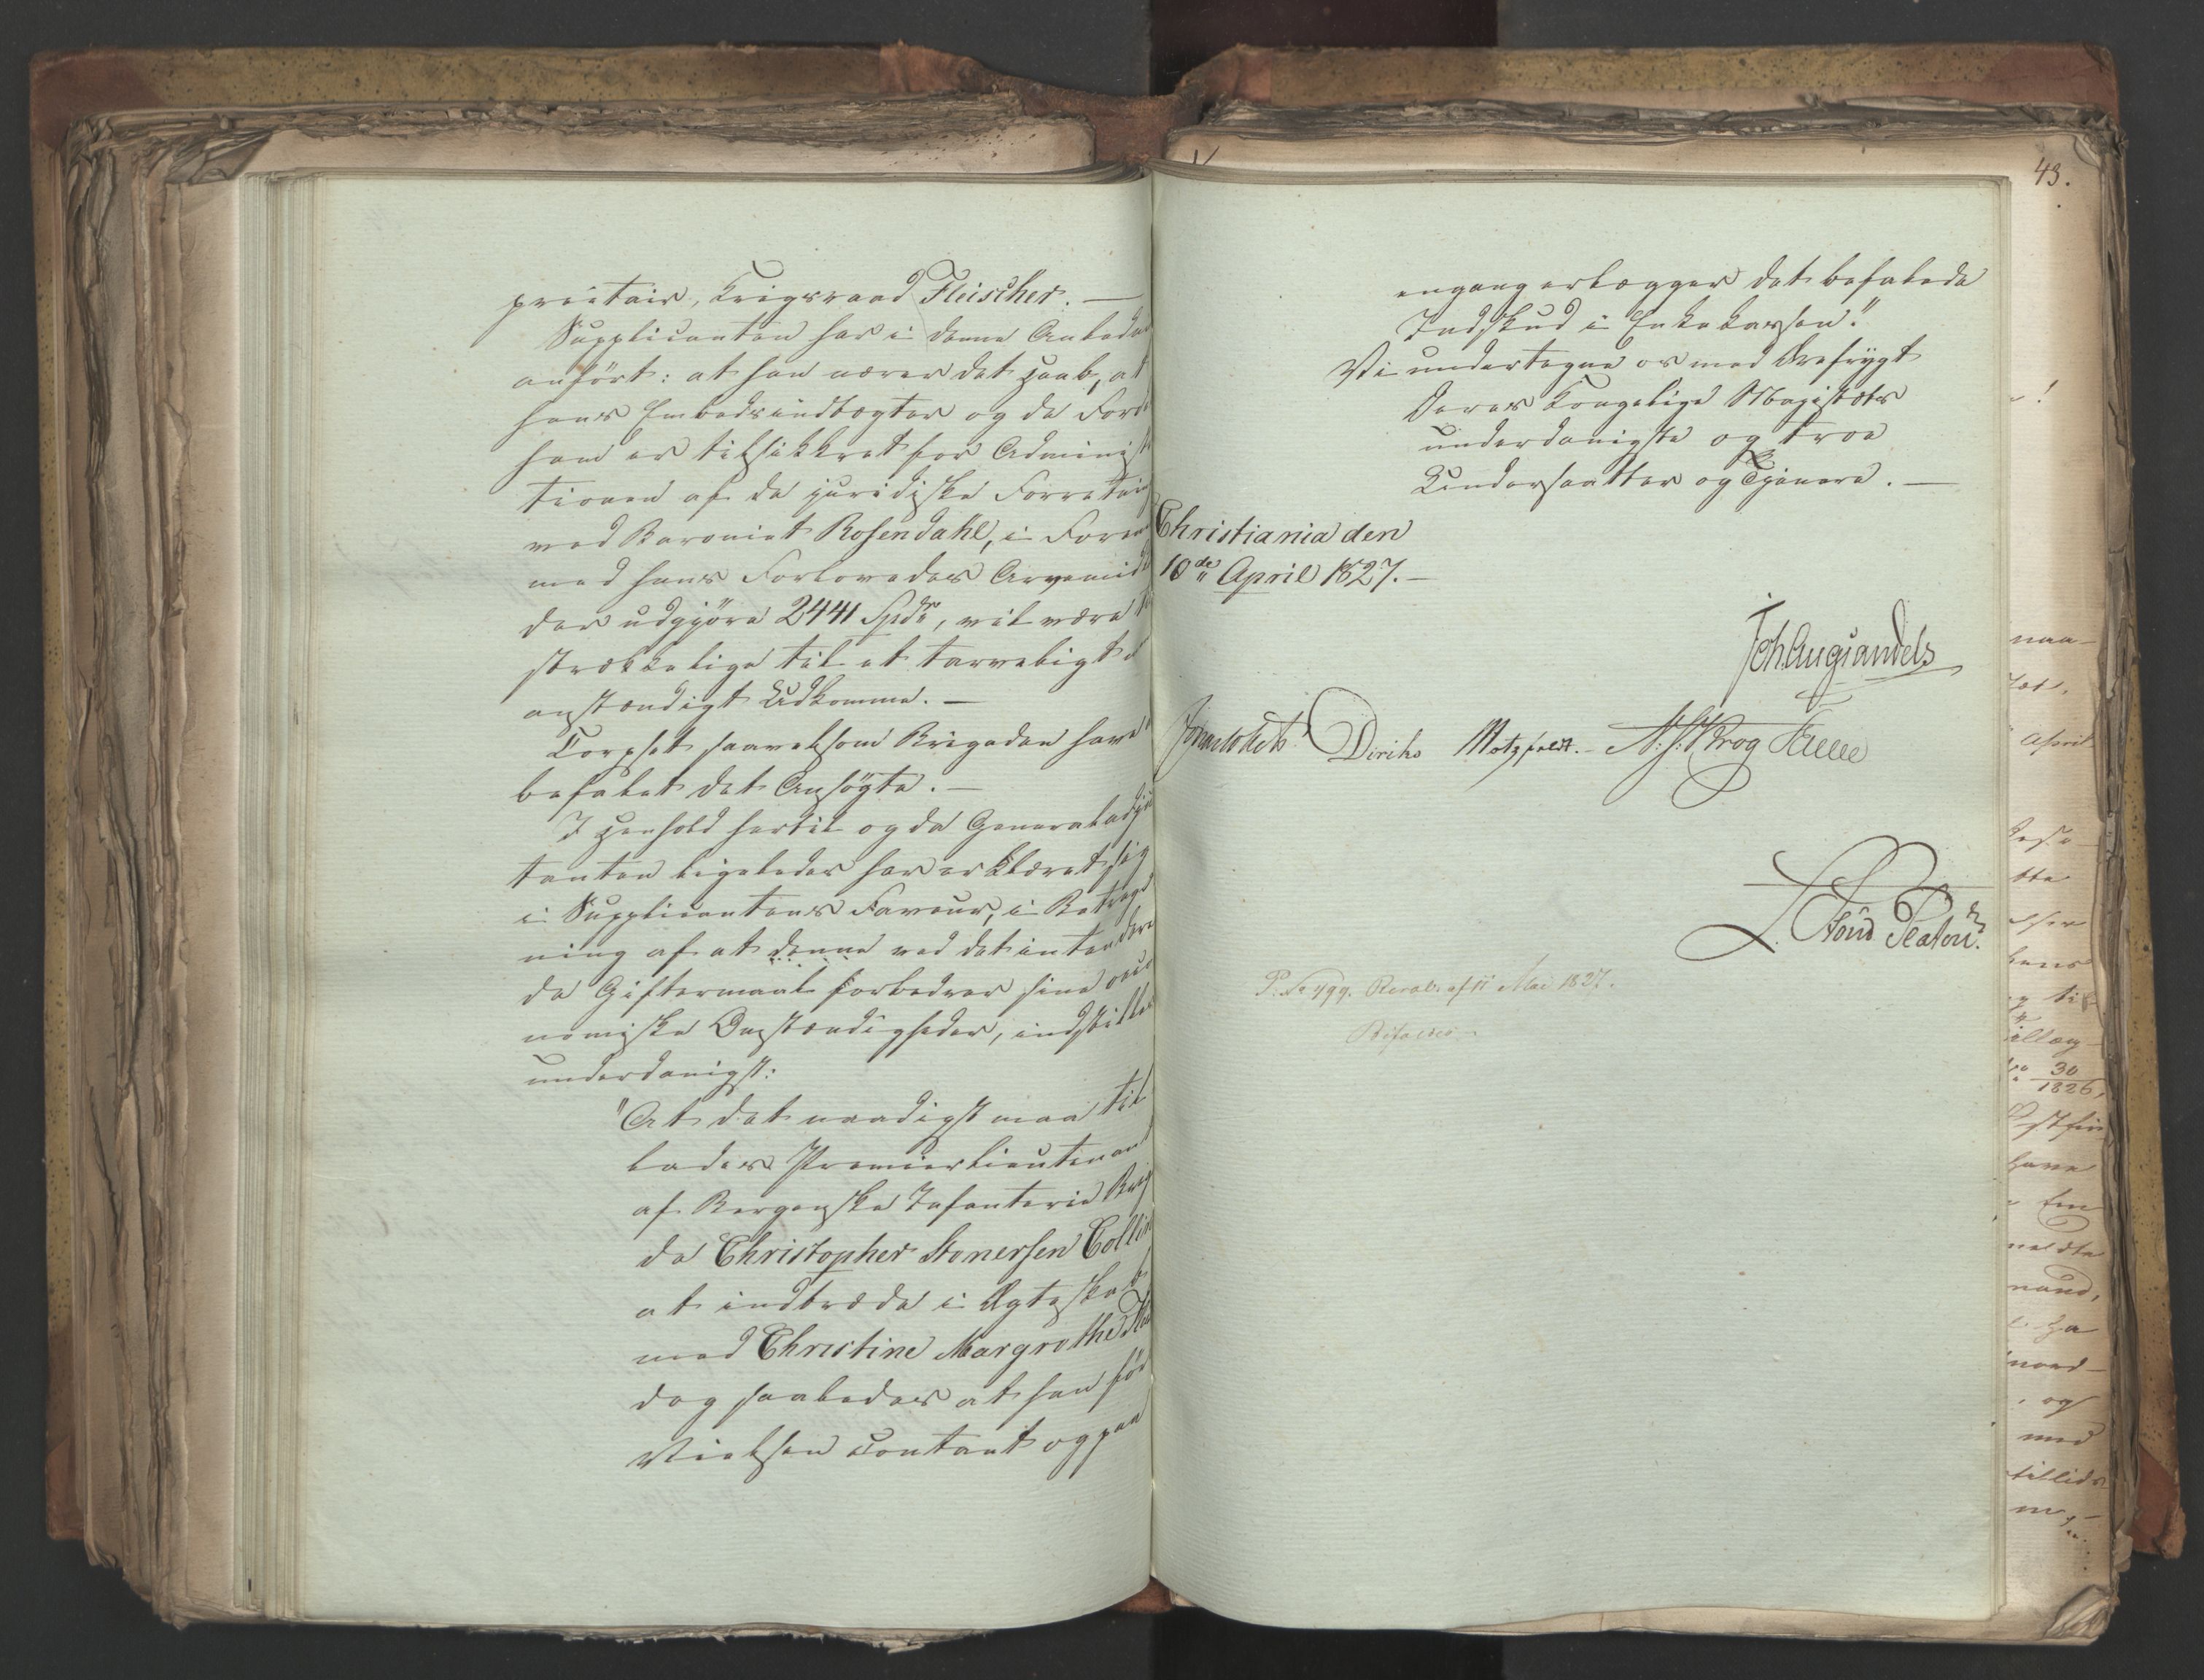 prietair, Krigsraad Fleischer. —
Supplicanten har i denne Anled
anført: at han nærer det Haab, at
hans Embedsindtægter og de Ford
ham er tilsikkret for Administ
tionen af de juridiske Forretni
ved Baroniet Rosendahl, i Foren
med hans Forlovedes Arvemid
der udgjøre 2441 Spdr, vil være
strækkelige til et tarveligt
anstændigt Udkomme. —
Corpset saavelsom Brigaden have
befalet det Ansøgte. —
I Henhold hertil og da Generaladju
tanten ligeledes har erklæret sig
i Supplicantens Faveur, i Betragt
ning af at denne ved det intendere
de Giftermaal forbedrer sine oeco
nomiske Omstændigheder, indstilles
underdanigst:
"At det naadigst maa til
lades Premierlieutenant
af Bergenske Infanterie Brig
de Christopher Stonersen Collin
at indtræde i Ægteskab
med Christine Margrethe Me
dog saaledes at han før
Vielsen contant og paa
43.
engang erlægger det befalede
Indskud i Enkekassen."
Vi undertegne os med Ærefrygt
Deres Kongelige Majestæts
underdanigste og troe
Undersaatter og Tjenere. —
Christiania den
10de April 1827. —
Joh. Aug. Sandels
Jonas Collett Diriks Motzfeldt. — A. S. Krog Fasting
P. No 499. Resol. af 11 Mai 1827.
naa-
April
30
1826,
have
med
og